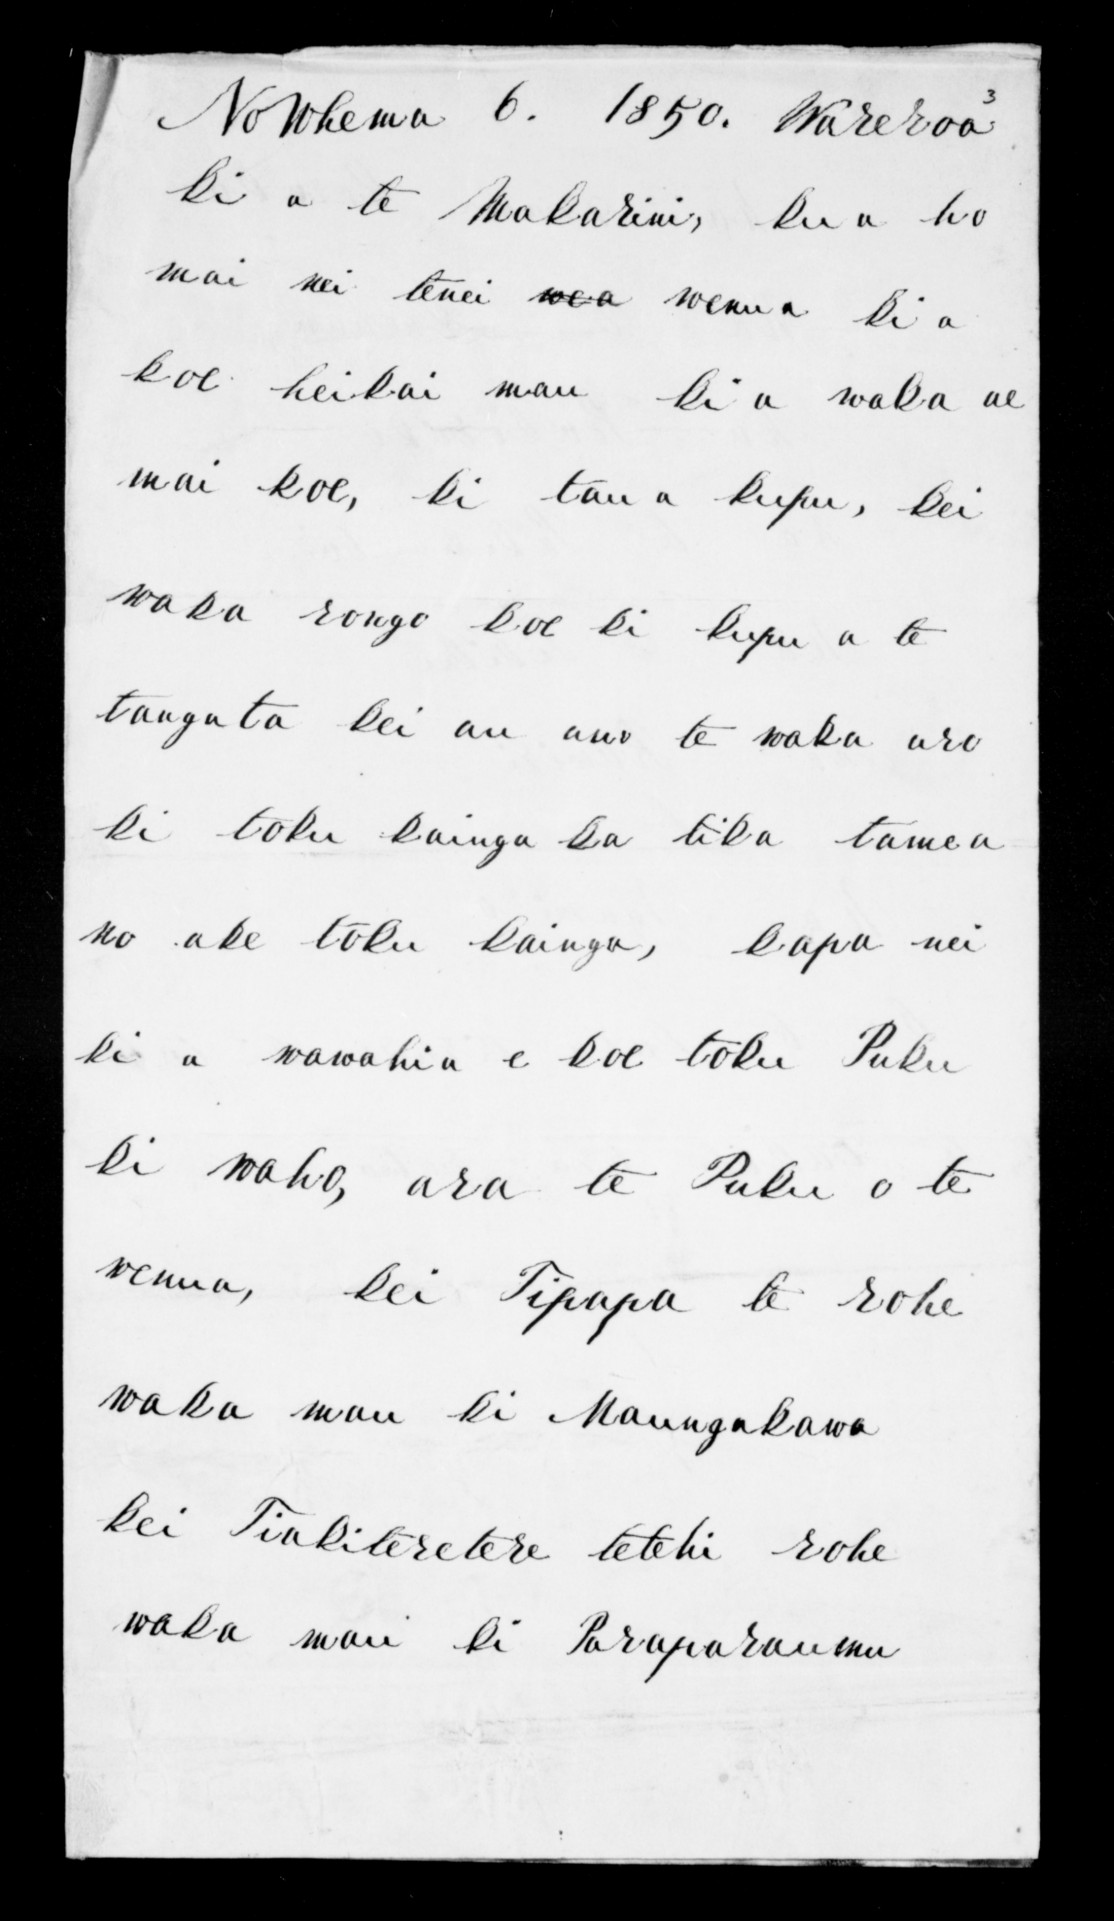 NoWhema 6. 1850. Wareroa 3
ki a te Makarini, kua ho
mai nei tenei wea wenua ki a
koe heikai mau kia waka ae
mai koe, ki taua kupu, kei
waka rongo koe ki kupu a te
tangata kei au ano te waka aro
ki toku kainga ka tika tamea
no ake toku kainga, kapa nei
ki a wawahia e koe toku Puku
ki waho, ara te Puku o te
wenua, kei Tipapa te rohe
waka mau ki Maungakawa
kei Tiakiteretere tetehi rohe
waka mau ki Paraparaumu